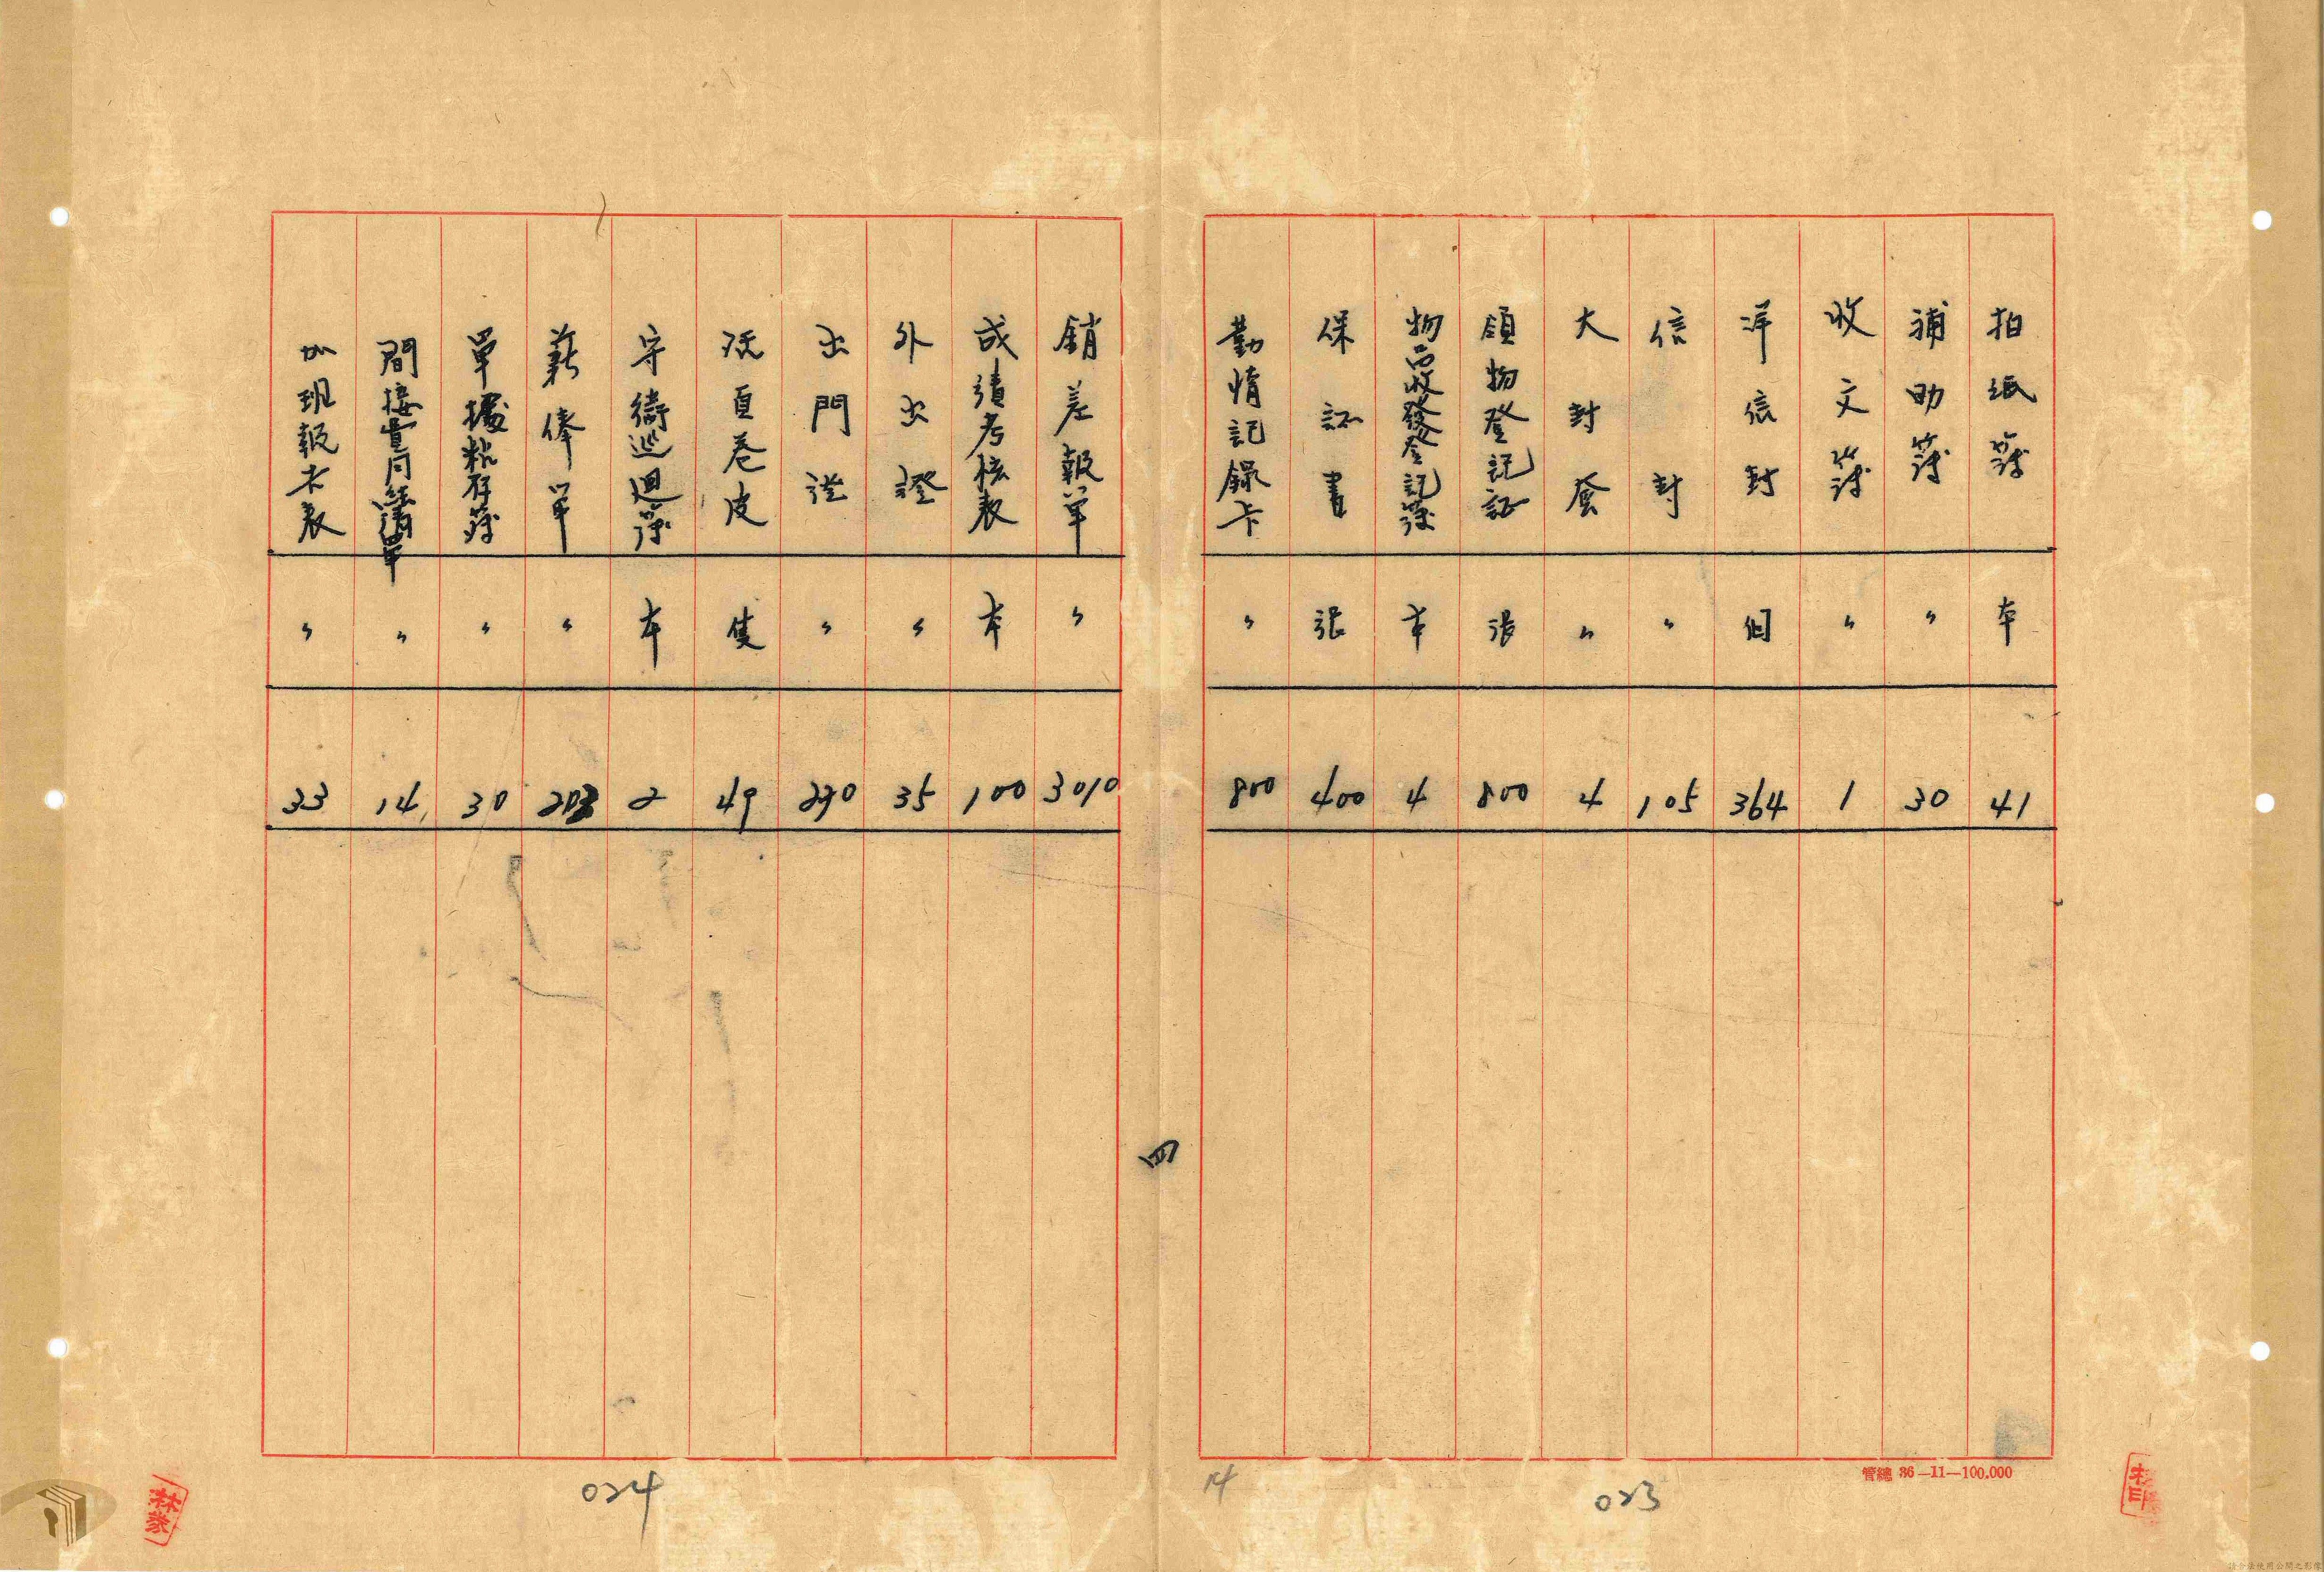 拍紙簿 本 41
補助簿 〃 30
收文簿 〃 1
洋信封 個 364
信封 〃 105
大封套 〃 4
領物登記証 張 800
物品收發登記簿 本 4
保証書 張 400
勤惰記錄卡 〃 800
銷差報單 〃 3010
成績考核表 本 100
外出證 〃 35
出門證 〃 290
活頁卷皮 隻 49
守衛巡迴簿 本 2
薪俸單 〃 203
單據粘存簿 〃 30
間接費用 清單 〃 14
加班報才表 〃 33
四
管總 36—11—100.000
14
023
024